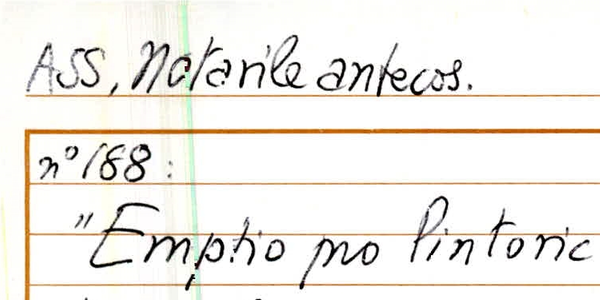 ASS, Notarile antecos.
n° 188:
"Emptio pro Pintoric